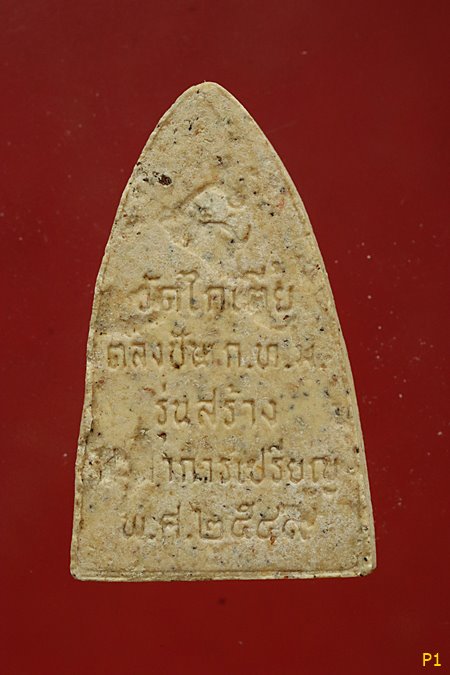 วัดไก่เตี้ย
ตลิ่งชัน ก.ท.ม.
รุ่นสร้าง
การเปรียญ
พ.ศ.๒๕๔๙
P1